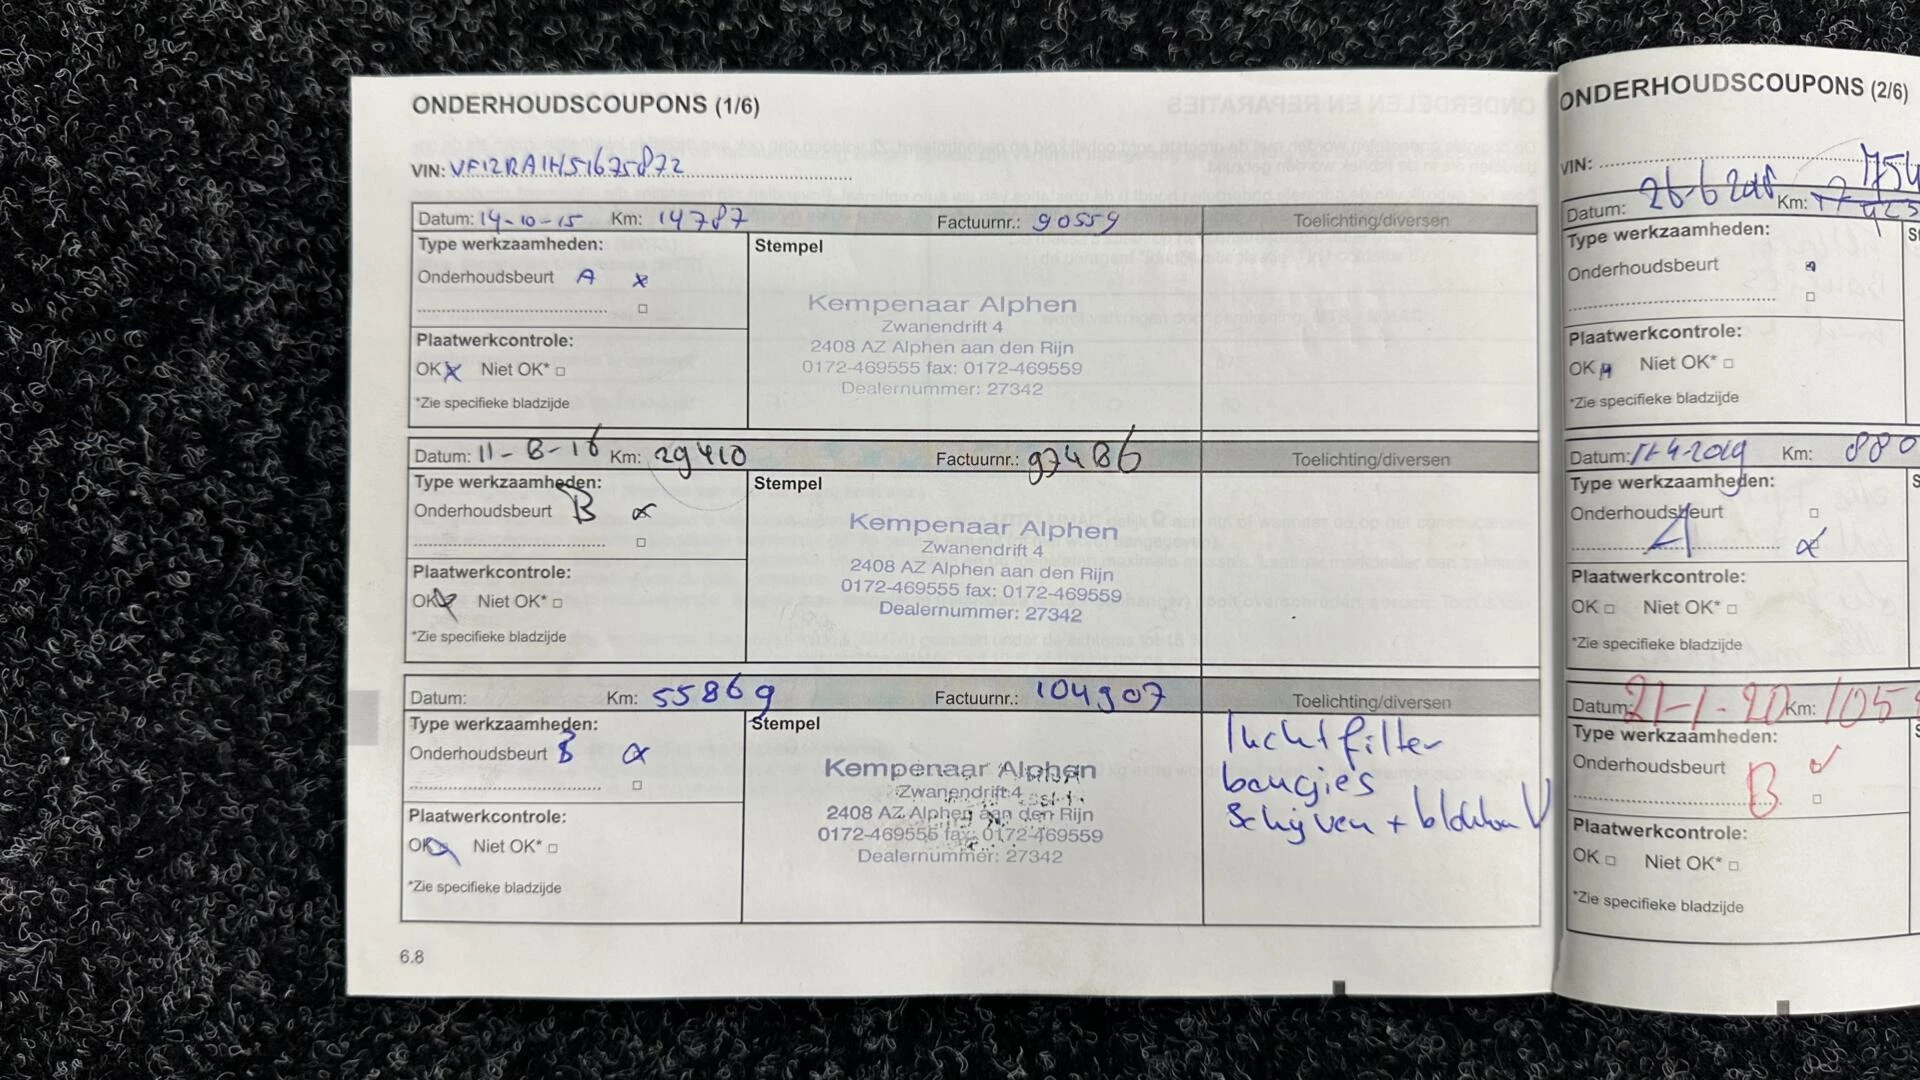 ONDERHOUDSCOUPONS (1/6)
VIN: VF12RA1H51675872
Datum: 14-10-15 Km: 14787 Factuurnr.: 90559 Toelichting/diversen
Type werkzaamheden: Stempel
Onderhoudsbeurt A x
Plaatwerkcontrole:
OK x Niet OK* □
*Zie specifieke bladzijde
Kempenaar Alphen
Zwanendrift 4
2408 AZ Alphen aan den Rijn
0172-469555 fax: 0172-469559
Dealernummer: 27342
Datum: 11-8-16 Km: 29410 Factuurnr.: 97486 Toelichting/diversen
Type werkzaamheden: Stempel
Onderhoudsbeurt B x
Plaatwerkcontrole:
OK x Niet OK* □
*Zie specifieke bladzijde
Kempenaar Alphen
Zwanendrift 4
2408 AZ Alphen aan den Rijn
0172-469555 fax: 0172-469559
Dealernummer: 27342
Datum: Km: 55869 Factuurnr.: 104907 Toelichting/diversen
Type werkzaamheden: Stempel
Onderhoudsbeurt B x
Plaatwerkcontrole:
OK Niet OK* □
*Zie specifieke bladzijde
Kempenaar Alphen
Zwanendrift 4
2408 AZ Alphen aan den Rijn
0172-469556 fax: 0172-469559
Dealernummer: 27342
luchtfilter
bougies
Schijven +
6.8
ONDERHOUDSCOUPONS (2/6)
VIN:
Datum: 26-6-2018 Km: 754
Type werkzaamheden:
Onderhoudsbeurt
Plaatwerkcontrole:
OK Niet OK* □
*Zie specifieke bladzijde
Datum: 11-4-2019 Km: 880
Type werkzaamheden:
Onderhoudsbeurt □
A x
Plaatwerkcontrole:
OK □ Niet OK* □
*Zie specifieke bladzijde
Datum: 21-1-20 Km: 105
Type werkzaamheden:
Onderhoudsbeurt ✓
B □
Plaatwerkcontrole:
OK □ Niet OK* □
*Zie specifieke bladzijde